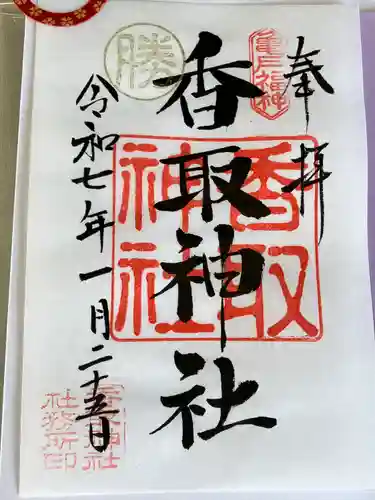 奉拝
亀戸福神
香取神社
香取
神社
勝
令和七年一月二十五日
社務所印